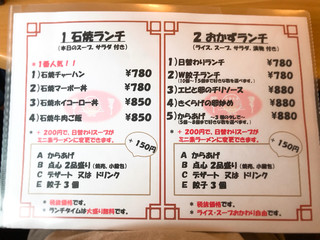 1 石焼ランチ
(本日のスープ、サラダ 付き)
*1番人気!!
1)石焼チャーハン ¥780
2)石焼マーボー丼 ¥780
3)石焼ホイコーロー丼 ¥850
4)石焼牛肉ご飯 ¥850
* +200円で、日替わりスープが
ミニ坦々ラーメンに変更できます。
+150円
A からあげ
B 点心 2品盛り(焼売、小籠包)
C デザート 又は ドリンク
E 餃子 3個
* 税抜価格です。
* ランチタイムは大盛り無料です。
2 おかずランチ
(ライス、スープ、サラダ、漬物 付き)
1)日替わりランチ ¥780
2)W餃子ランチ ¥780
3)エビと卵のチリソース ¥880
4)きくらげの卵炒め ¥880
5)からあげ ¥880
* +200円で、日替わりスープが
ミニ坦々ラーメンに変更できます。
+150円
A からあげ
B 点心 2品盛り(焼売、小籠包)
C デザート 又は ドリンク
E 餃子 3個
* 税抜価格です。
* ライス・スープおかわり自由です。